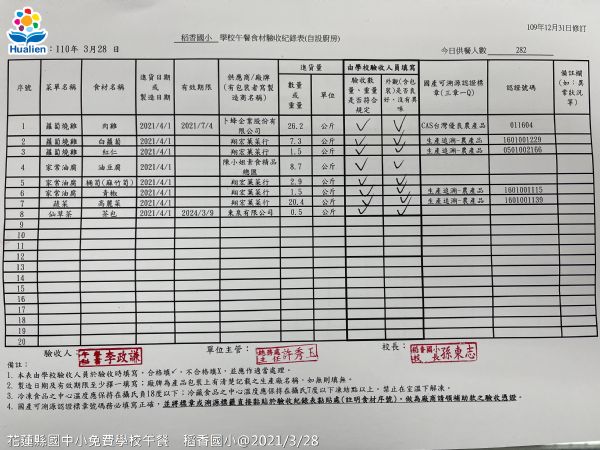 Hualien
稻香國小 學校午餐食材驗收紀錄表(自設廚房)
109年12月31日修訂
:110年 3月28 日
今日供餐人數 282
序號 菜單名稱 食材名稱 進貨日期或製造日期 有效期限 供應商/廠牌(有包裝者寫製造商名稱) 進貨量 數量或重量 單位 由學校驗收人員填寫 驗收數量、重量是否符合規定 外觀(含包裝)是否良好,沒有異味 國產可溯源認證標章(三章一Q) 認證號碼 備註欄(如:異常狀況等)
1 蘿蔔燒雞 肉雞 2021/4/1 2021/7/4 卜蜂企業股份有限公司 26.2 公斤 ✓ ✓ CAS台灣優良農產品 011604
2 蘿蔔燒雞 白蘿蔔 2021/4/1 翔宏蔬菜行 7.3 公斤 ✓ ✓ 生產追溯-農產品 1601001229
3 蘿蔔燒雞 紅仁 2021/4/1 翔宏蔬菜行 1.5 公斤 ✓ ✓ 生產追溯-農產品 0501002166
4 家常油腐 油豆腐 2021/4/1 陳小姐素食精品總匯 8.7 公斤 ✓ ✓
5 家常油腐 桶筍(麻竹筍) 2021/4/1 翔宏蔬菜行 2.9 公斤 ✓ ✓
6 家常油腐 青椒 2021/4/1 翔宏蔬菜行 1.5 公斤 ✓ ✓ 生產追溯-農產品 1601001115
7 蔬菜 高麗菜 2021/4/1 翔宏蔬菜行 20.4 公斤 ✓ ✓ 生產追溯-農產品 1601001139
8 仙草茶 茶包 2021/4/1 2024/3/9 東泉有限公司 0.5 公斤 ✓ ✓
9
10
11
12
13
14
15
16
17
18
19
20
驗收人: 李政謙 單位主管: 總務處主任 許秀玉 校長: 稻香國小校長 孫東志
備註:
1. 本表由學校驗收人員於驗收時填寫,合格填✓,不合格填X,並應作適當處理。
2. 製造日期及有效期限至少擇一填寫;廠牌為產品包裝上有清楚記載之生產廠名稱,如無則填無。
3. 冷凍食品之中心溫度應保持在攝氏負18度以下;冷藏食品之中心溫度應保持在攝氏7度以下凍結點以上,禁止在室溫下解凍。
4. 國產可溯源認證標章號碼務必填寫正確,並將標章或溯源標籤直接黏貼於驗收紀錄表黏貼處(註明食材序號),做為廠商請領補助款之驗收憑證。
花蓮縣國中小免費學校午餐 稻香國小@2021/3/28